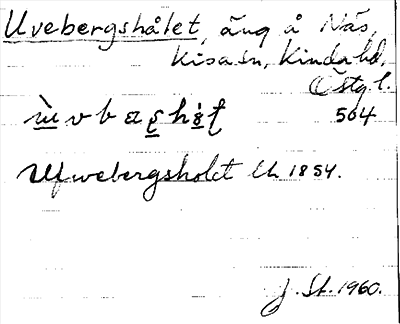 Uvebergshålet, äng å Näs,
Kisa sn, Kinda hd,
Östg. l.
504
Ufwebergsholet Lh 1854.
J. St. 1960.